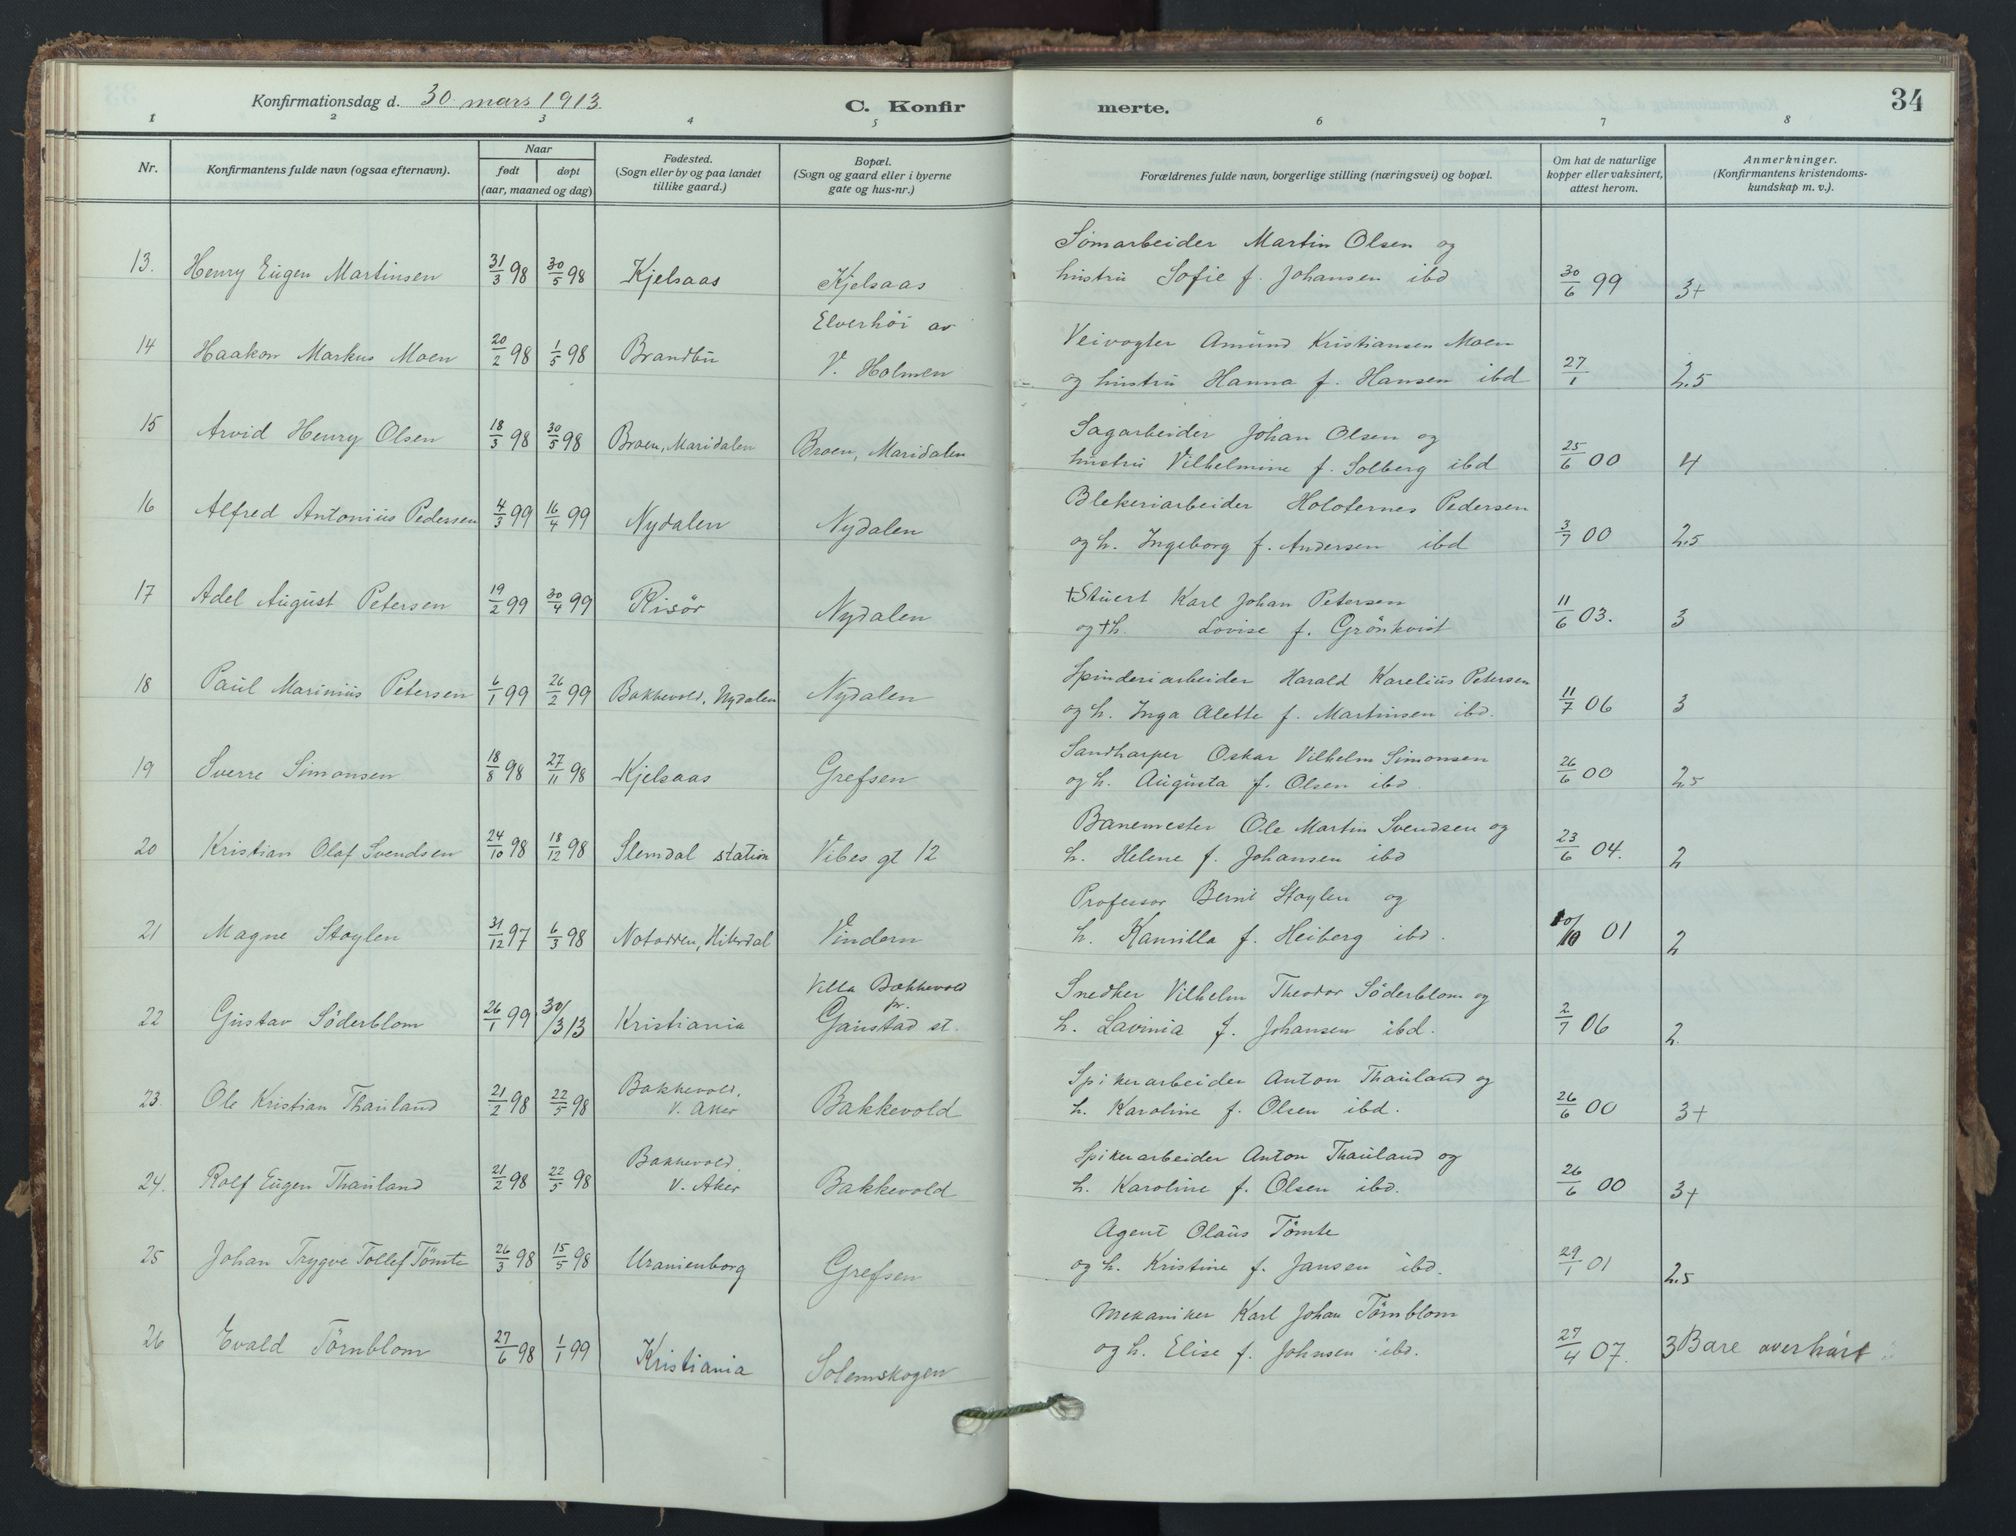 Konfirmationsdag d. 30 mars 1913 C. Konfir merte. 34
1 2 3 4 5 6 7 8
Nr. Konfirmantens fulde navn (ogsaa efternavn). Naar født døpt (aar, maaned og dag) Fødested. (Sogn eller by og paa landet tillike gaard.) Bopæl. (Sogn og gaard eller i byerne gate og hus-nr.) Forældrenes fulde navn, borgerlige stilling (næringsvei) og bopæl. Om hat de naturlige kopper eller vaksinert, attest herom. Anmerkninger. (Konfirmantens kristendoms-kundskap m. v.)
13. Henry Eugen Martinsen 31/3 98 30/5 98 Kjelsaas Kjelsaas Sømarbeider Martin Olsen og
hustru Sofie f. Johansen ibd 30/6 99 3+
14 Haakon Markus Moen 20/2 98 1/5 98 Brandbu Elverhöi av
V. Holmen Veivogter Amund Kristiansen Moen
og hustru Hanna f. Hansen ibd 27/1 2.5
15 Arvid Henry Olsen 18/3 98 30/5 98 Braen, Maridalen Braen, Maridalen Sagarbeider Johan Olsen og
hustru Vilhelmine f. Solberg ibd 25/6 00 4
16 Alfred Antonius Pedersen 4/3 99 16/4 99 Nydalen Nydalen Blekeriarbeider Holofernes Pedersen
og h. Ingeborg f. Andersen ibd 3/7 00 2.5
17 Adel August Petersen 19/2 99 30/4 99 Risör Nydalen +Stuert Karl Johan Petersen
og +h. Lovise f. Grönkvist 11/6 03. 3
18 Paul Marinius Petersen 6/1 99 26/2 99 Bakkevold, Nydalen Nydalen Spinderiarbeider Harald Karelius Petersen
og h. Inga Alette f. Martinsen ibd. 11/7 06 3
19 Sverre Simonsen 18/8 98 27/11 98 Kjelsaas Grefsen Sandharper Oskar Vilhelm Simonsen
og h. Augusta f. Olsen ibd. 26/6 00 2.5
20 Kristian Olaf Svendsen 24/10 98 18/12 98 Slemdal station Vibes gt 12 Banemester Ole Martin Svendsen og
h. Helene f. Johansen ibd 23/6 04. 2
21 Magne Stöylen 31/12 97 6/3 98 Notodden, Hiterdal Vindern Professor Bernt Stöylen og
h. Kamilla f. Heiberg ibd. 10/10 01 2
22 Gustav Söderblom 26/1 99 30/3 13 Kristiania Villa Bakkevold
pr.
Gaustad st. Snedker Vilhelm Theodor Söderblom og
h. Lavinia f. Johansen ibd. 2/7 06 2.
23. Ole Kristian Thauland 21/2 98 22/5 98 Bakkevold,
V. Aker Bakkevold Spikerarbeider Anton Thauland og
h. Karoline f. Olsen ibd. 26/6 00 3+
24. Rolf Eugen Thauland 21/2 98 22/5 98 Bakkevold,
V. Aker Bakkevold Spikerarbeider Anton Thauland og
h. Karoline f. Olsen ibd. 26/6 00 3+
25 Johan Trygve Tollef Tömte 26/3 98 15/5 98 Uranienborg Grefsen Agent Olaus Tömte
og h. Kristine f. Jansen ibd. 29/1 01 2.5
26 Evald Törnblom 27/6 98 1/1 99 Kristiania Solemskogen Mekaniker Karl Johan Törnblom
og h. Elise f. Johnsen ibd. 27/4 07. 3 Bare overhört